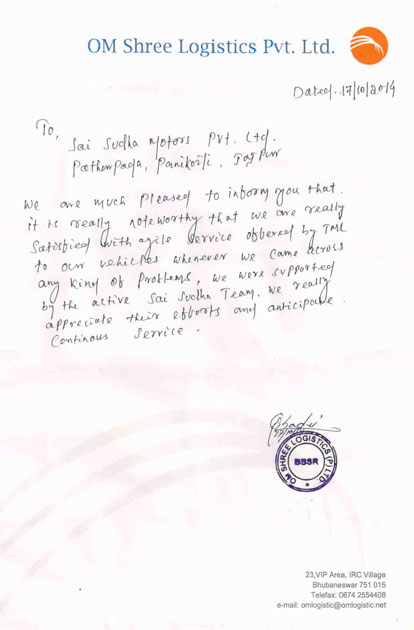 OM Shree Logistics Pvt. Ltd.
Dated. 17/10/2014
To,
Sai Sudha Motors Pvt. Ltd.
Panikoili, Jajpur
We are much pleased to inform you that.
it is really noteworthy that we are really
Satisfied with agile service offered by TML
to our vehicles whenever we came across
any kind of problems, we were supported
by the active Sai Sudha Team. We really
appreciate their efforts and anticipate.
Continous Service.
OM SHREE LOGISTICS (P) LTD.
BBSR
23,VIP Area, IRC Village
Bhubaneswar 751 015
Telefax: 0674 2554408
e-mail: omlogistic@omlogistic.net